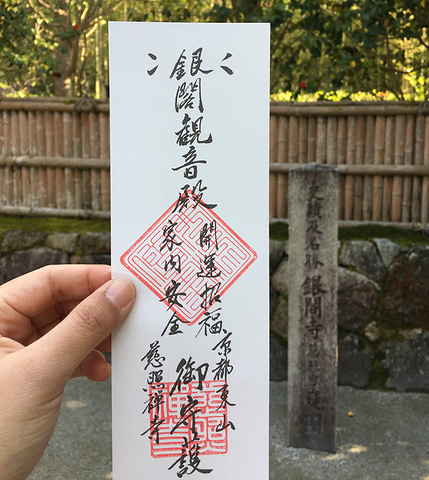 銀閣観音殿
開運招福
家内安全
京都東山
御守護
慈照禅寺
史蹟及名勝 銀閣寺
庭園